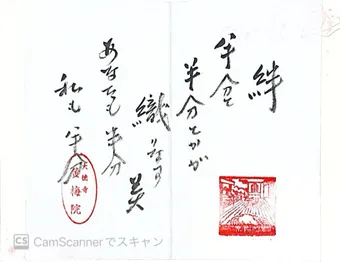 絆
半分と
半分とかが
織りなす
美
あなたも半分
私も半分
CS CamScannerでスキャン